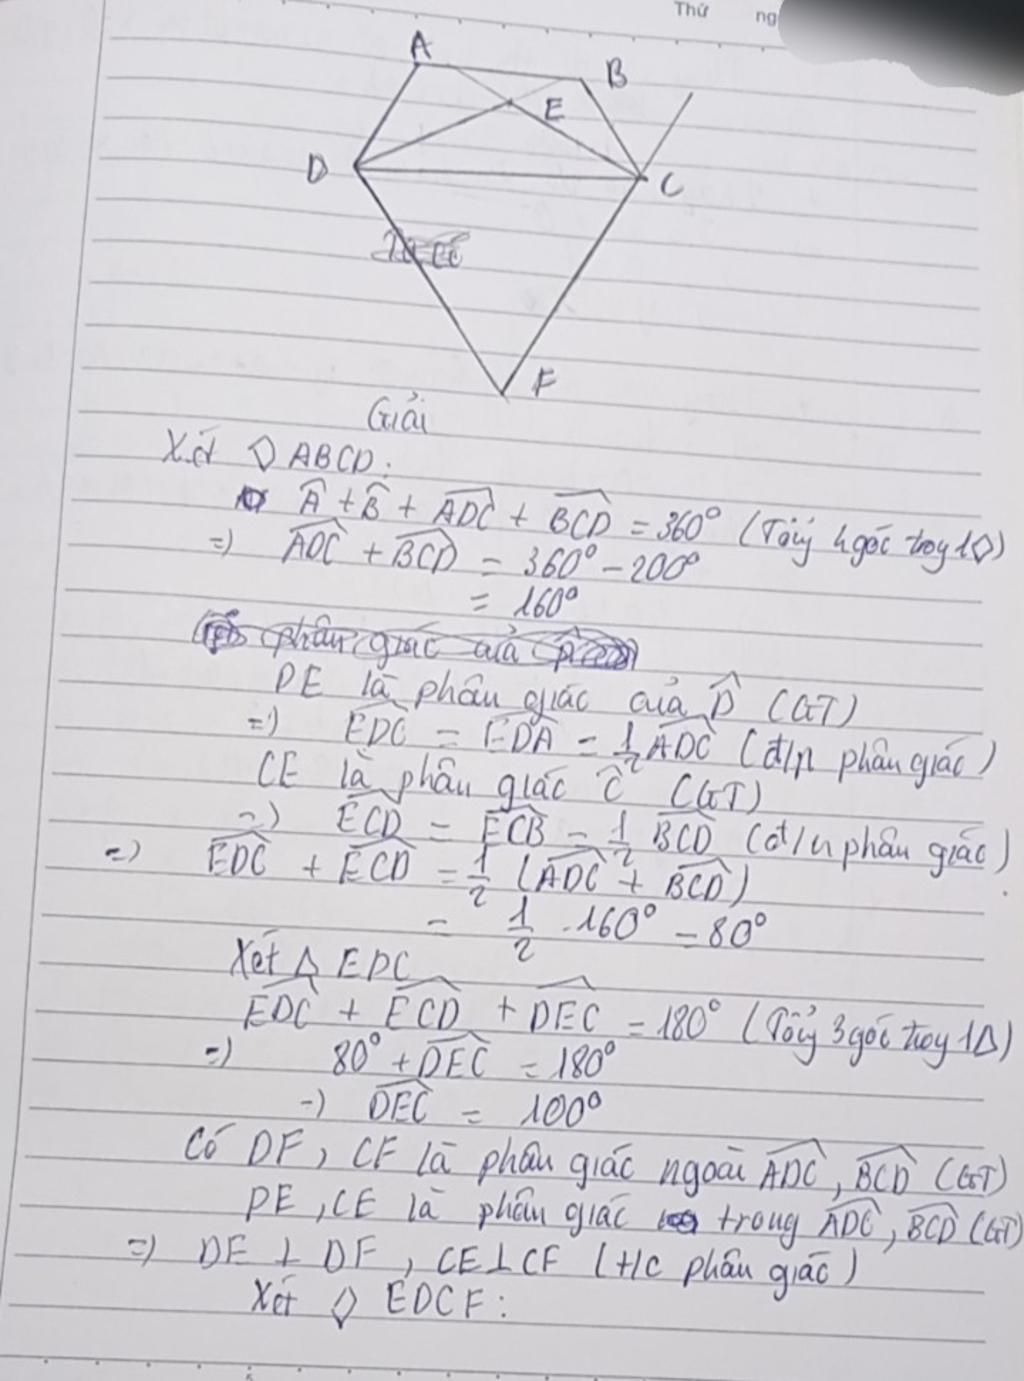 Thứ ng
A
B
E
D
C
F
Giải
Xét ◊ ABCD:
Â + B̂ + ADC̑ + BCD̑ = 360° (Tổng 4 góc trong 1◊)
=) ADC̑ + BCD̑ = 360° - 200°
= 160°
DE là phân giác của D̂ (GT)
=) EDC̑ = EDȂ = 1/2 ADC̑ (đ/n phân giác)
CE là phân giác Ĉ (GT)
=) ECD̑ = ECB̑ = 1/2 BCD̑ (đ/n phân giác)
=) EDC̑ + ECD̑ = 1/2 (ADC̑ + BCD̑)
= 1/2 . 160° = 80°
Xét Δ EDC
EDC̑ + ECD̑ + DEC̑ = 180° (Tổng 3 góc trong 1Δ)
=) 80° + DEC̑ = 180°
=) DEC̑ = 100°
Có DF, CF là phân giác ngoài ADC̑, BCD̑ (GT)
DE, CE là phân giác trong ADC̑, BCD̑ (GT)
=) DE ⊥ DF, CE ⊥ CF (t/c phân giác)
Xét ◊ EDCF: